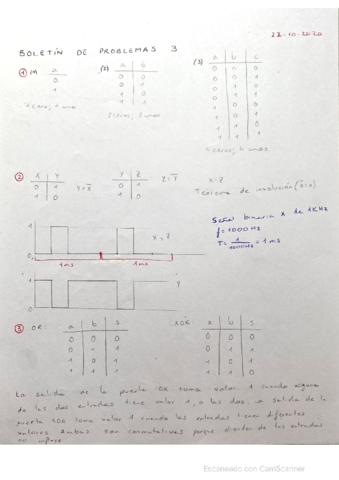 22-10-2020
BOLETÍN DE PROBLEMAS 3
① (1) a
0
1
1 cero, 1 uno
(2) a b
0 0
0 1
1 0
1 1
2 ceros, 2 unos
(3) a b c
0 0 0
0 0 1
0 1 0
0 1 1
1 0 0
1 0 1
1 1 0
1 1 1
4 ceros, 4 unos
② X Y
0 1
1 0
Y=X̅
Y Z
0 1
1 0
Z=Y̅
X=Z
Teorema de involución
Señal binaria X de 1KHz
f=1000Hz
T= 1/1000Hz = 1 ms
1
0
X, Z
1ms 1ms
1
Y
③ OR: a b s
0 0 0
0 1 1
1 0 1
1 1 1
XOR: a b s
0 0 0
0 1 1
1 0 1
1 1 0
La salida de la puerta OR toma valor 1 cuando alguna
de las dos entradas tiene valor 1, o las dos. La salida de la
puerta XOR toma valor 1 cuando las entradas tienen diferentes
valores. Ambas son conmutativas porque el orden de las entradas
no influye
Escaneado con CamScanner